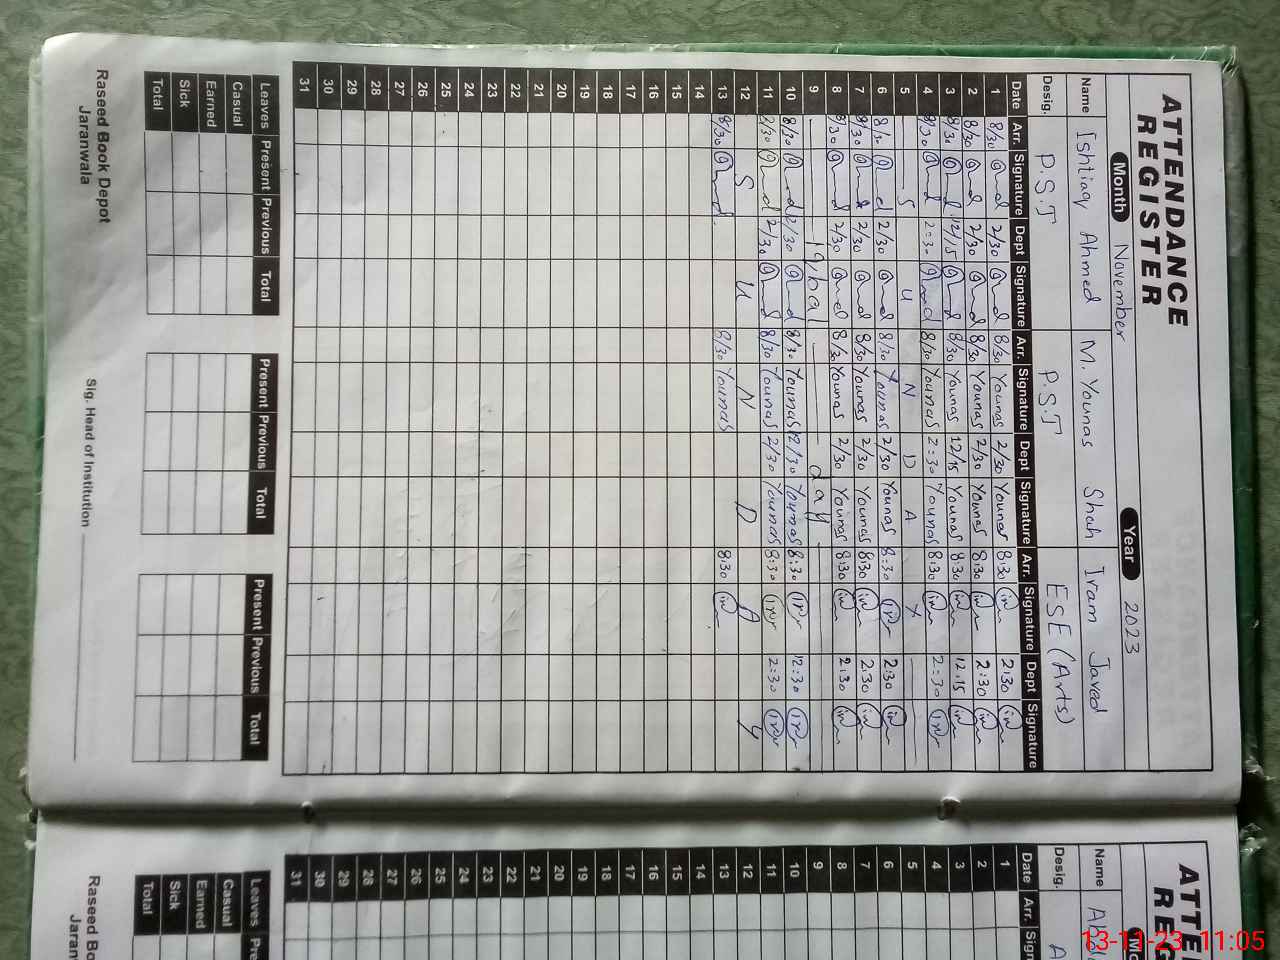 ATTENDANCE
REGISTER
Month November Year 2023
Name Ishtiaq Ahmed M. Younas Shah Iram Javed
Desig. P.S.T P.S.T ESE (Arts)
Date Arr. Signature Dept Signature Arr. Signature Dept Signature Arr. Signature Dept Signature
1 8/30 2/30 8/30 Younas 2/30 Younas 8:30 2:30
2 8/30 2/30 8/30 Younas 2/30 Younas 8:30 2:30
3 8/30 12/15 8/30 Younas 12/15 Younas 8:30 12.15
4 8/30 2=30 8/30 Younas 2=30 Younas 8:30 2=30
5 S U N D A Y
6 8/30 2/30 8/30 Younas 2/30 Younas 8:30 2:30
7 8/30 2/30 8/30 Younas 2/30 Younas 8:30 2:30
8 8/30 2/30 8/30 Younas 2/30 Younas 8:30 2:30
9 Iqbal day
10 8/30 12/30 8/30 Younas 12/30 Younas 8:30 12:30
11 8/30 2/30 8/30 Younas 2/30 Younas 8:30 2:30
12 S U N D A Y
13 8/30 8/30 Younas 8:30
14
15
16
17
18
19
20
21
22
23
24
25
26
27
28
29
30
31
Leaves Present Previous Total Present Previous Total Present Previous Total
Casual
Earned
Sick
Total
Raseed Book Depot
Jaranwala
Sig. Head of Institution
ATTE
REG
Name
Desig. A
Date Arr.
1
2
3
4
5
6
7
8
9
10
11
12
13
14
15
16
17
18
19
20
21
22
23
24
25
26
27
28
29
30
31
Leaves
Casual
Earned
Sick
Total
Raseed Bo
Jaran
13-11-23 11:05